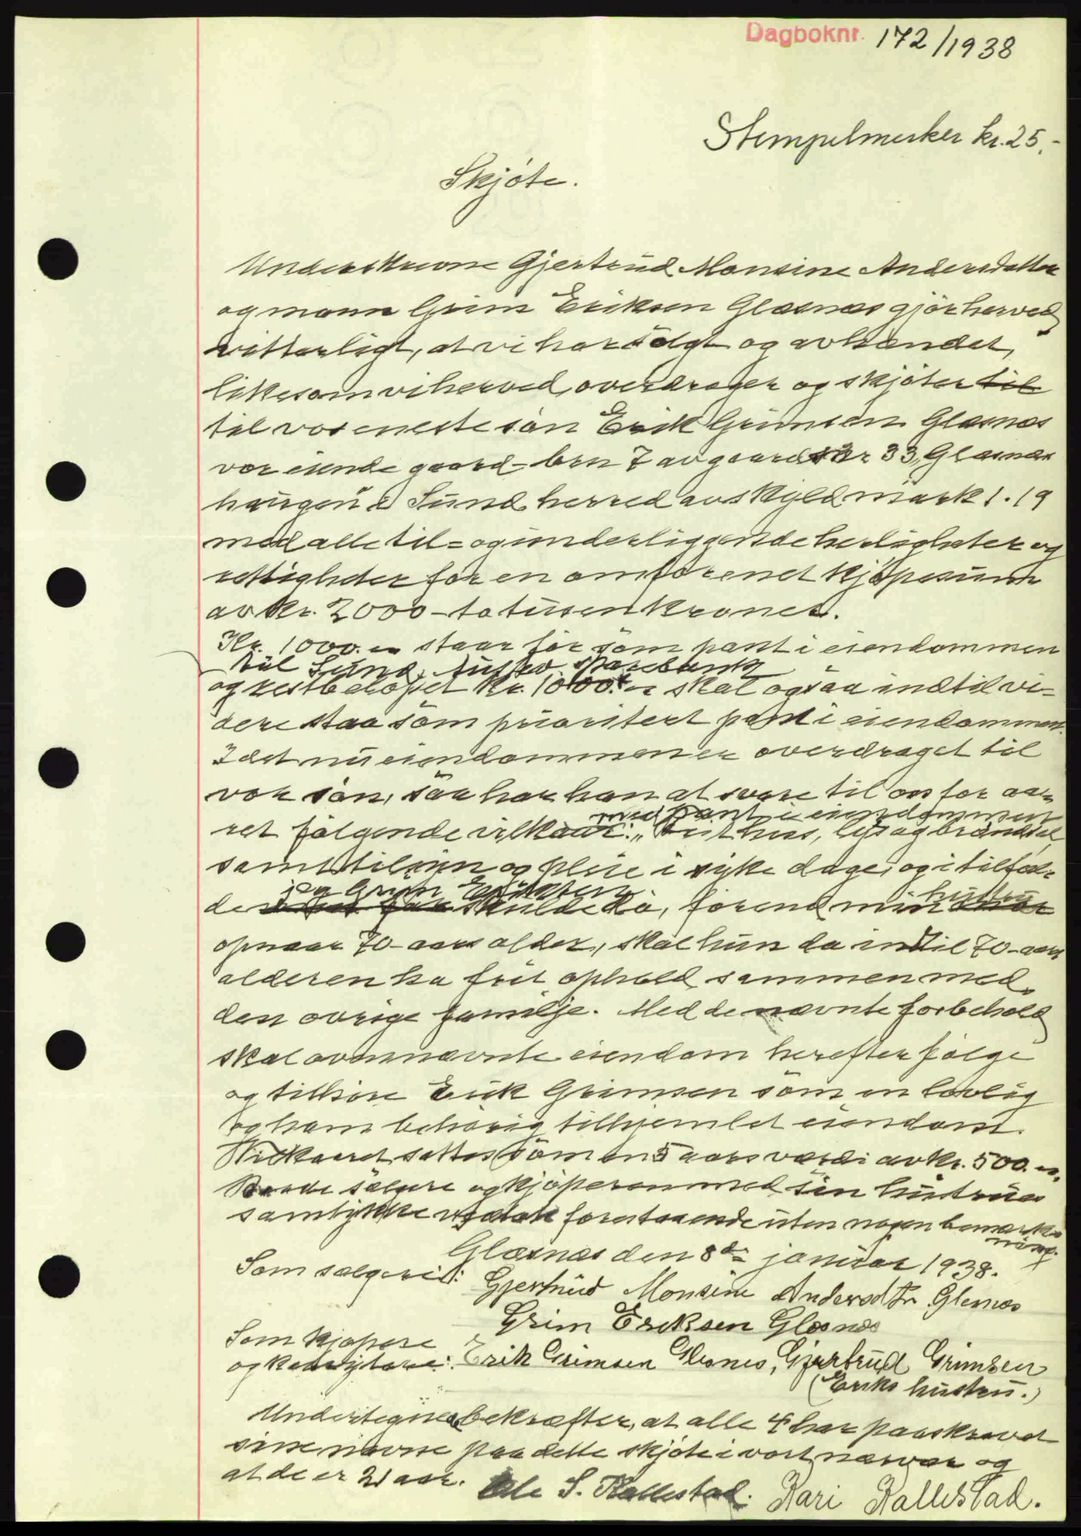 Dagboknr. 172/1938
Stempelmerker kr. 25.-
Skjöte.
Underskrevne Gjertrud Monsine Andersdatter
og mann Grim Eriksen Glæsnæs gjör herved
vitterligt, at vi har solgt og avhændet,
likesom vi herved overdrager og skjöter til
til vor eneste sön Erik Grimsen Glæsnæs
vor eiende gaard brn 7 av gaards nr 33, Glæsnæs
haugen i Sund herred av skyld mark 1.19
med alle til- og underliggende herligheter og
rettigheter for en omforenet kjöpesum
av kr. 2000 - totusen kroner.
Kr. 1000.- staar för som pant i eiendommen
til Sund, Sparebank
og restbelöpet kr. 1000.- skal ogsaa indtil vi-
dere staa som prioritert pant i eiendommen.
Idet nu eiendommen er overdraget til
vor sön, saa har han at svare til os for aa-
med pant i eiendommen
ret fölgende vilkaar: Frit hus, lys og brændsel
samt tilsyn og pleie i syke dage, og i tilfæl-
jeg Grim Eriksen hustru
de skulde dö, forend min
opnaar 70-aars alder, skal hun da indtil 70-aars
alderen ha frit ophold sammen med
den ovrige familje. Med de nævnte forbehold
skal ovennævnte eiendom herefter fölge
og tilhöre Erik Grimsen som en lovlig
og ham behörig tilhjemlet eiendom.
Vilkaaret sættes som en 5 aars værdi av kr. 500.-
Baade sælgere og kjöperen med sin hustrues
samtykke vedtok foranstaaende uten nogen bemærk-
ning.
Glæsnæs den 8de januar 1938.
Som sælgere: Gjertrud Monsine Andersdtr Glesnæs
Grim Eriksen Glæsnæs
Som kjöpere
og : Erik Grimsen Glesnes, Gjertrud Grimsen
(Eriks hustru.)
Undertegnede bekræfter, at alle 4 har paaskrevet
sine navne paa dette skjöte i vort nærvær og
at de er 21 aar. Ole S. Kallestad. Kari Kallestad.